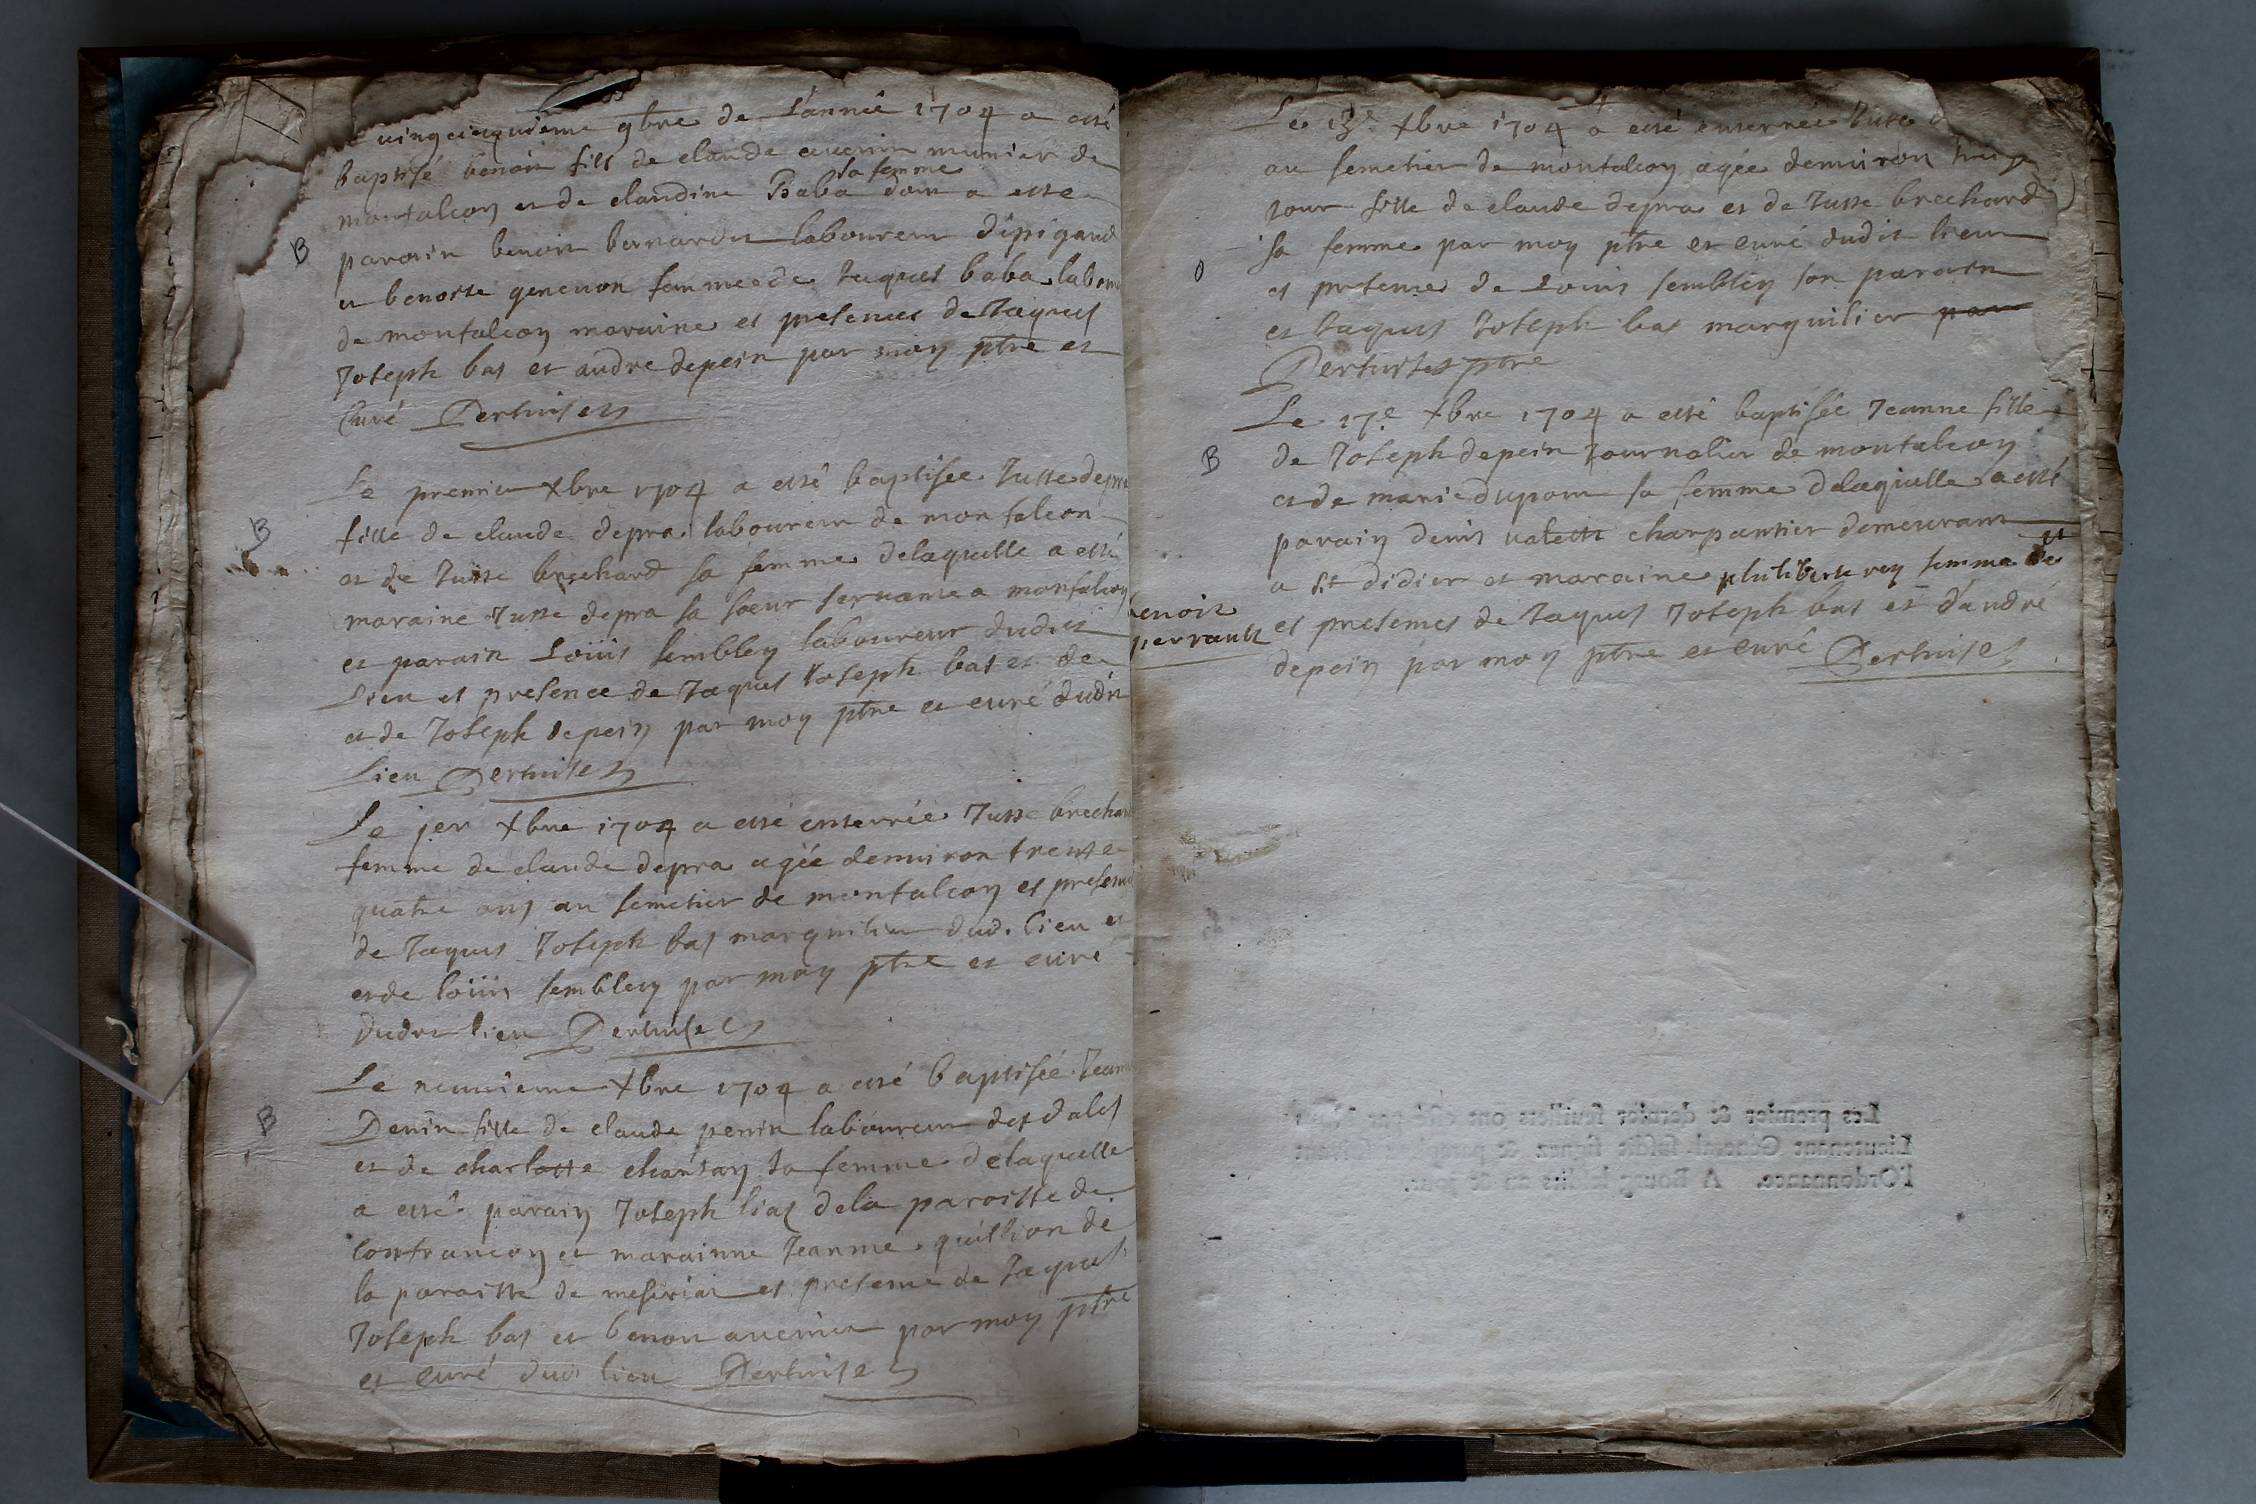 vingcinquieme 9bre de L'année 1704 a esté
baptisé benoit fils de claude munier de
sa femme
montalcon et de claudine Baba dont a esté
B
parain benoit bernardet laboureur
et benoite genevon femme de Jaques baba labour
de montfalcon maraine et presences de Jaques
Joseph bas et andre depein par moy ptre et
Curé Pertuiset
Le premier Xbre 1704 a esté baptisée Jusse depra
B
fille de claude depra laboureur de montfalcon
et de Jusse brechard sa femme delaquelle a esté
maraine Jusse depra sa soeur servante a montfalcon
et parain Loüis sembley laboureur dudit
Lieu et presence de Jaques Joseph bas et de
et de Joseph depein par moy ptre et curé dudit
Lieu Pertuiset
Le jer Xbre 1704 a esté enterrée Jusse brechard
femme de claude depra agée denviron trente
quatre ans au semetier de montfalcon et presence
de Jaques Joseph bas marguilier dud. lieu et
et de loüis sembley par moy ptre et curé
dudit lieu Pertuiset
Le neuvieme Xbre 1704 a esté baptisée Jeanne
B
Penin fille de claude penin laboureur des dales
et de charlotte chansay sa femme delaquelle
a esté parain Joseph lias dela paroisse de
confrancon et marainne Jeanne quillion de
la paroisse de meseriat et presence de Jaques
Joseph bas et benoit par moy ptre
et curé dud lieu Pertuiset
Le 13e Xbre 1704 a esté enterrée Jusse d
au semetier de montalcon agée denviron
jour fille de claude depra et de Jusse brechard
sa femme par moy ptre et curé dudit lieu
et presence de Louis sembley son parain
et Jaques Joseph bas marguilier par
Pertuiset ptre
Le 17e Xbre 1704 a esté baptisée Jeanne fille
B
de Joseph depein Journalier de montalcon
et de marie dupont sa femme delaquelle a esté
parain denis valett charpantier demeurant
a St didier et maraine philiberte rey femme de
benoit
perrault
et presences de Jaques Joseph bas et d'andré
depein par moy ptre et curé Pertuiset